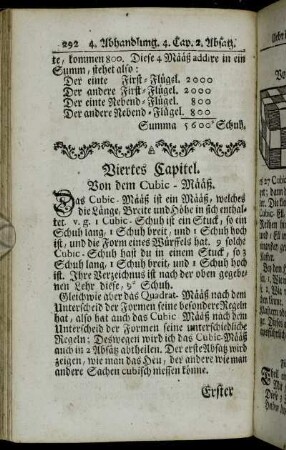 292 4. Abhandlung. 4. Cap. 2. Absatz.
te, kommen 800. Diese 4 Mååß addire in ein
Summ, stehet also:
Der eine First-Flůgel. 2000
Der andere First-Flůgel. 2000
Der eine Nebend-Flůgel. 800
Der andere Nebend-Flůgel. 800
Summa 5600² Schuh.
Viertes Capitel.
Von dem Cubic-Mååß.
Das Cubic-Mååß ist ein Mååß, welches
die Långe, Breite und Hőhe in sich enthal-
tet v. g. 1 Cubic-Schuh ist ein Stuck, so ein
Schuh lang, 1 Schuh breit, und 1 Schuh hoch
ist, und die Form eines Wůrffels hat. 9 solche
Cubic-Schuh hast du in einem Stuck, so 3
Schuh lang, 3 Schuh breit, und 1 Schuh hoch
ist. Ihre Verzeichnuß ist nach der oben gegebe-
nen Lehr diese,
Gleichwie aber das Quadrat-Mååß nach dem
Unterscheid der Formen seine besondere Regeln
hat, also hat auch das Cubic Mååß nach dem
Unterscheid der Formen seine unterschiedliche
Regeln: Deswegen wird ich das Cubic-Mååß
auch in 2 Absåtz abtheilen. Der erste Absatz wird
zeigen, wie man das Heu, der andere wie man
andere Sachen cubisch messen kőnne.
Erster